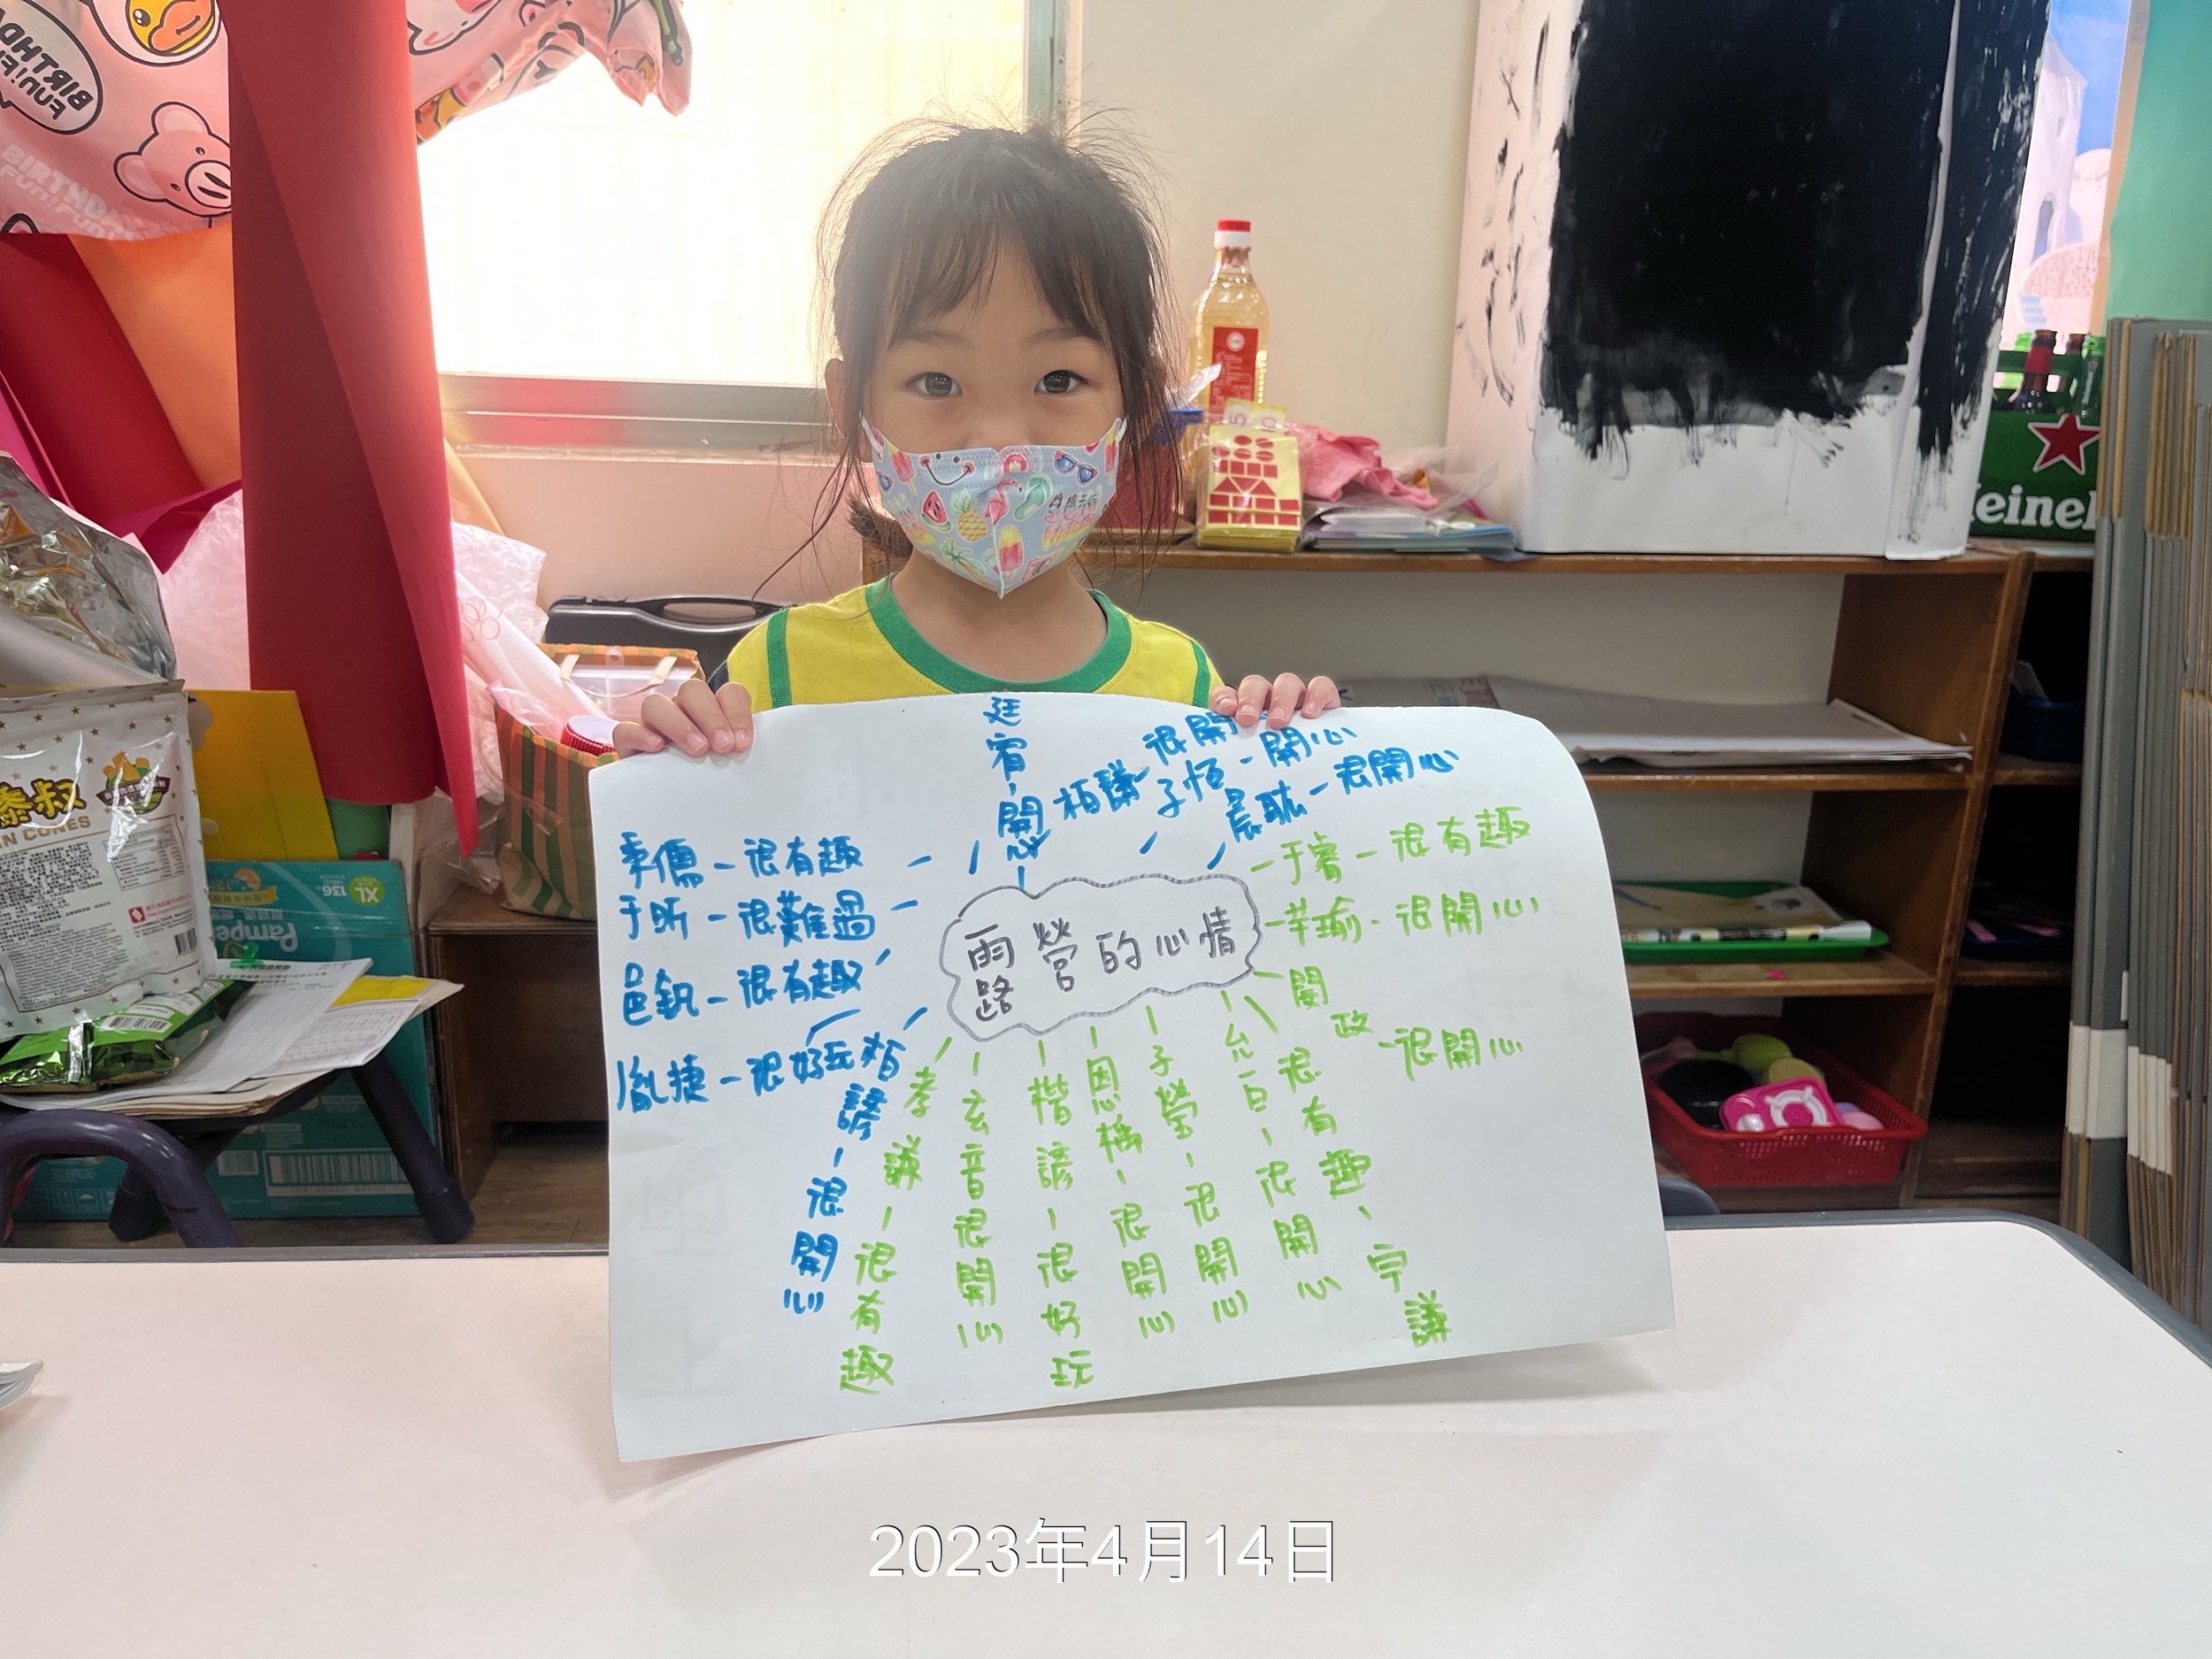 廷宥-開心
柏謙-很開
子恆-開心
晨耾-很開心
季儒-很有趣
于昕-很難過
邑釩-很有趣
胤捷-很好玩
柏諺-很開心
露營的心情
于睿-很有趣
芊瑜-很開心
開政-很開心
孝謙-很有趣
玄音很開心
楷諺-很好玩
恩橋-很開心
子瑩-很開心
允百-很開心
很有趣、宇謙
BIRTHDAY
FUN!FUN!
CONES
136
XL
Pampers
Heineken
2023年4月14日